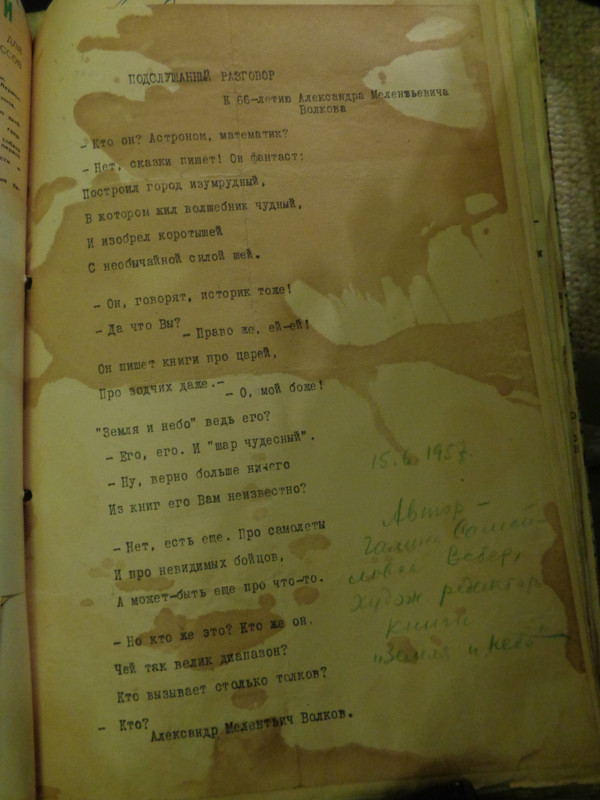 ПОДСЛУШАННЫЙ РАЗГОВОР
К 66-летию Александра Мелентьевича
Волкова
- Кто он? Астроном, математик?
- Нет, сказки пишет! Он фантаст:
Построил город изумрудный,
В котором жил волшебник чудный,
И изобрел коротышей
С необычайной силой шей.
- Он, говорят, историк тоже!
- Да что Вы?
- Право же, ей-ей!
Он пишет книги про царей,
Про зодчих даже.-
- О, мой боже!
"Земля и небо" ведь его?
- Его, его. И "шар чудесный".
- Ну, верно больше ничего
Из книг его Вам неизвестно?
- Нет, есть еще. Про самолеты
И про невидимых бойцов,
А может-быть еще про что-то.
- Но кто же это? Кто же он,
Чей так велик диапазон?
Кто вызывает столько толков?
- Кто?
Александр Мелентьич Волков.
15.6.1957.
Автор -
Галина
Вебер,
худож редактор
книги
"Земля и небо"